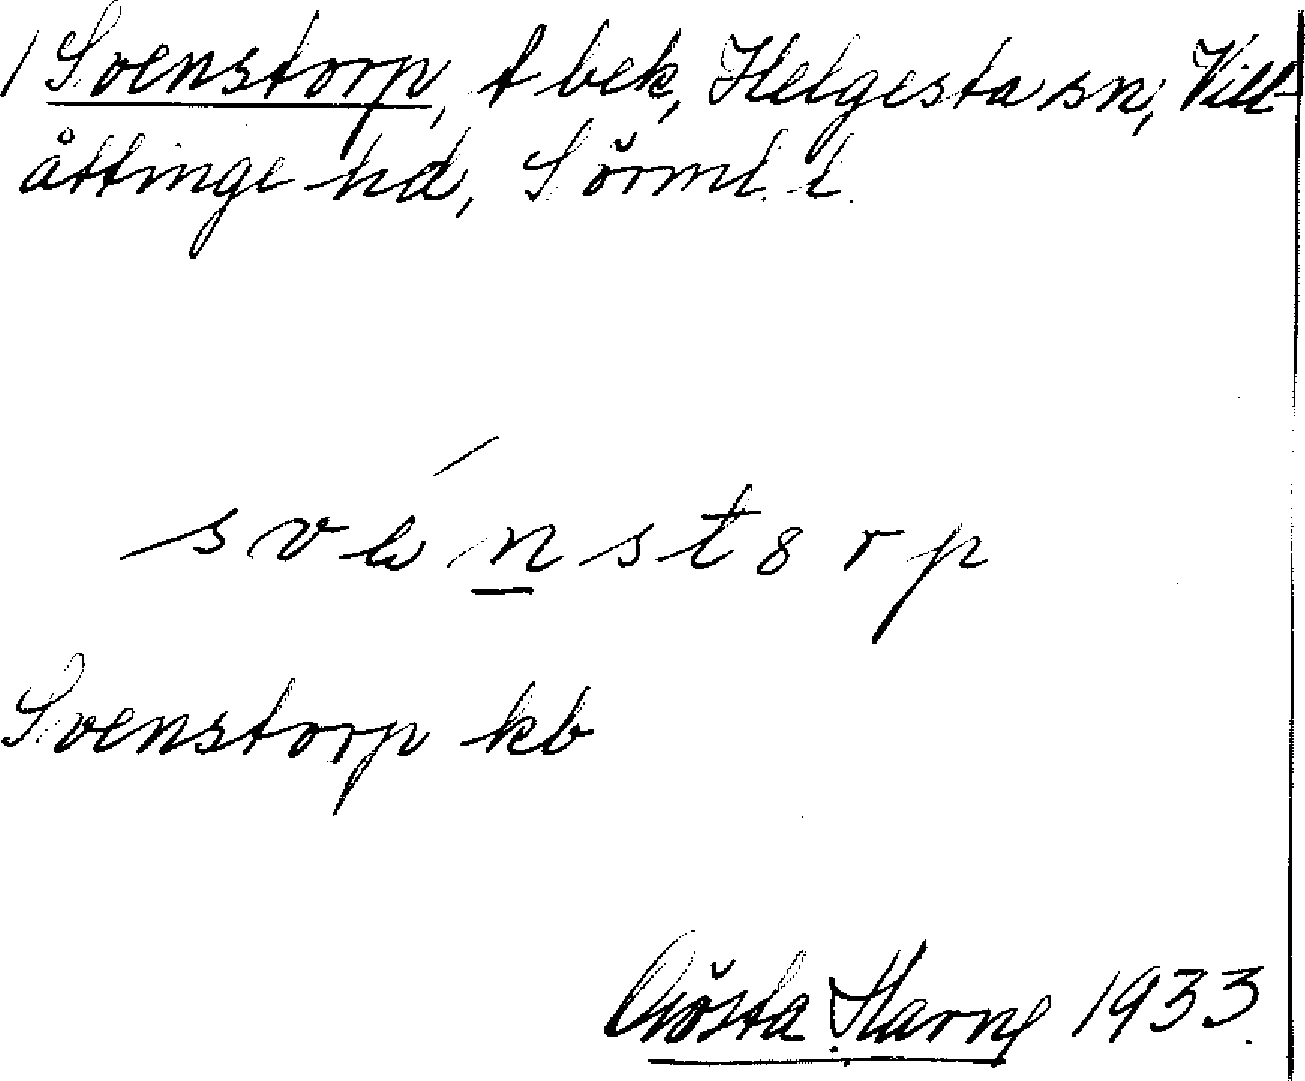 1 Svenstorp, t bek, Helgesta sn, Vill-
åttinge hd, Sörml. l.
svénst8rp
Svenstorp kb
Gösta Harne 1933.